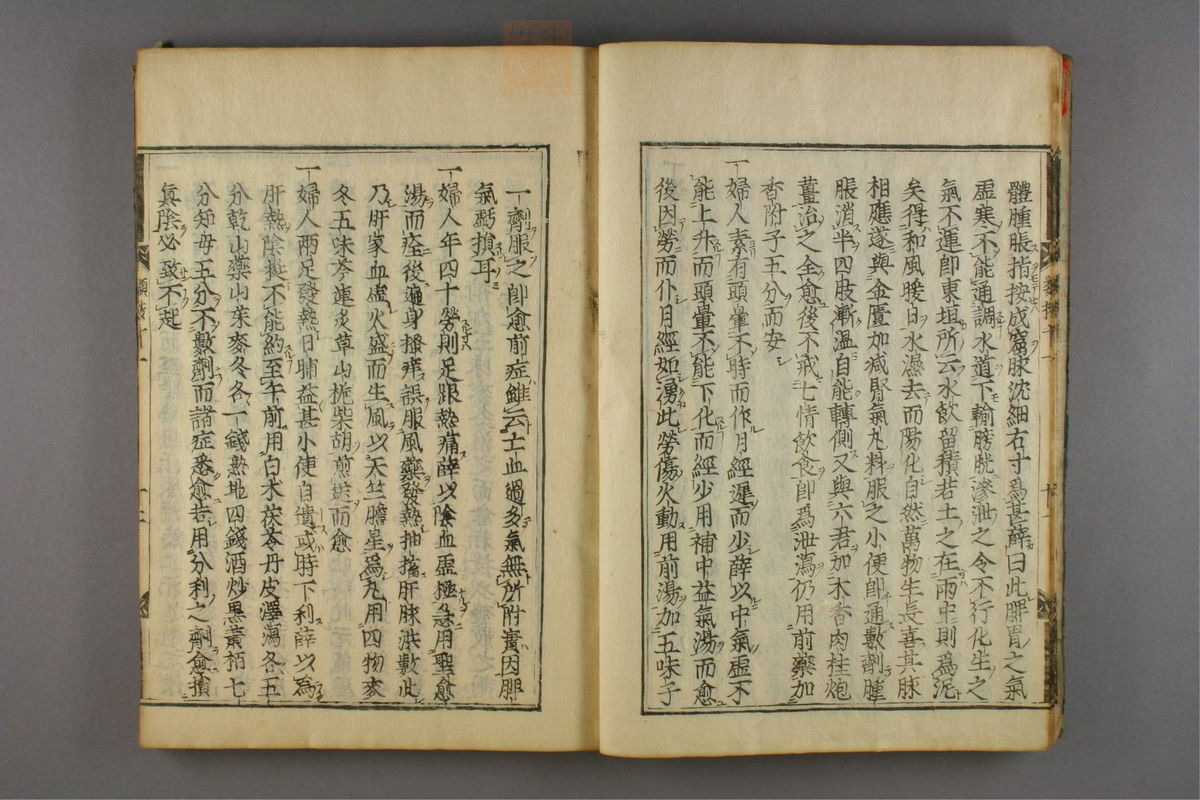 體腫脹指按成窟脉沈細右寸爲甚薛曰此脾胃之氣
虛寒不能通調水道下輸膀胱滲泄之令不行化生之
氣不運卽東垣所云水飲留積若土之在雨中則爲泥
矣得和風暖日水濕去而陽化自然萬物生長喜其脉
相應遂與金匱加减腎氣丸料服之小便卽通數劑腫
脹消半四肢漸溫自能轉側又與六君加木香肉桂炮
薑治之全愈後不戒七情飲食卽爲泄瀉仍用前藥加
香附子五分而安
一婦人素有頭暈不時而作月經遲而少薛以中氣虛不
能上升而頭暈不能下化而經少用補中益氣湯而愈
後因勞而仆月經如湧此勞傷火動用前湯加五味子
一劑服之卽愈前症雖云亡血過多氣無所附實因脾
氣虧損耳
一婦人年四十勞則足跟熱痛薛以陰血虛極急用聖愈
湯而痊後遍身搔痒誤服風藥發熱抽搐肝脉洪數此
乃肝家血虛火盛而生風以天竺膽星爲丸用四物麥
冬五味芩連炙草山梔柴胡煎送而愈
一婦人兩足發熱日晡益甚小便自遺或時下利薛以爲
肝熱陰挺不能約至午前用白朮茯苓丹皮澤瀉各五
分乾山藥山茱麥冬各一錢熟地四錢酒炒黑黃栢七
分知母五分不數劑而諸症悉愈若用分利之劑愈損
眞陰必致不起